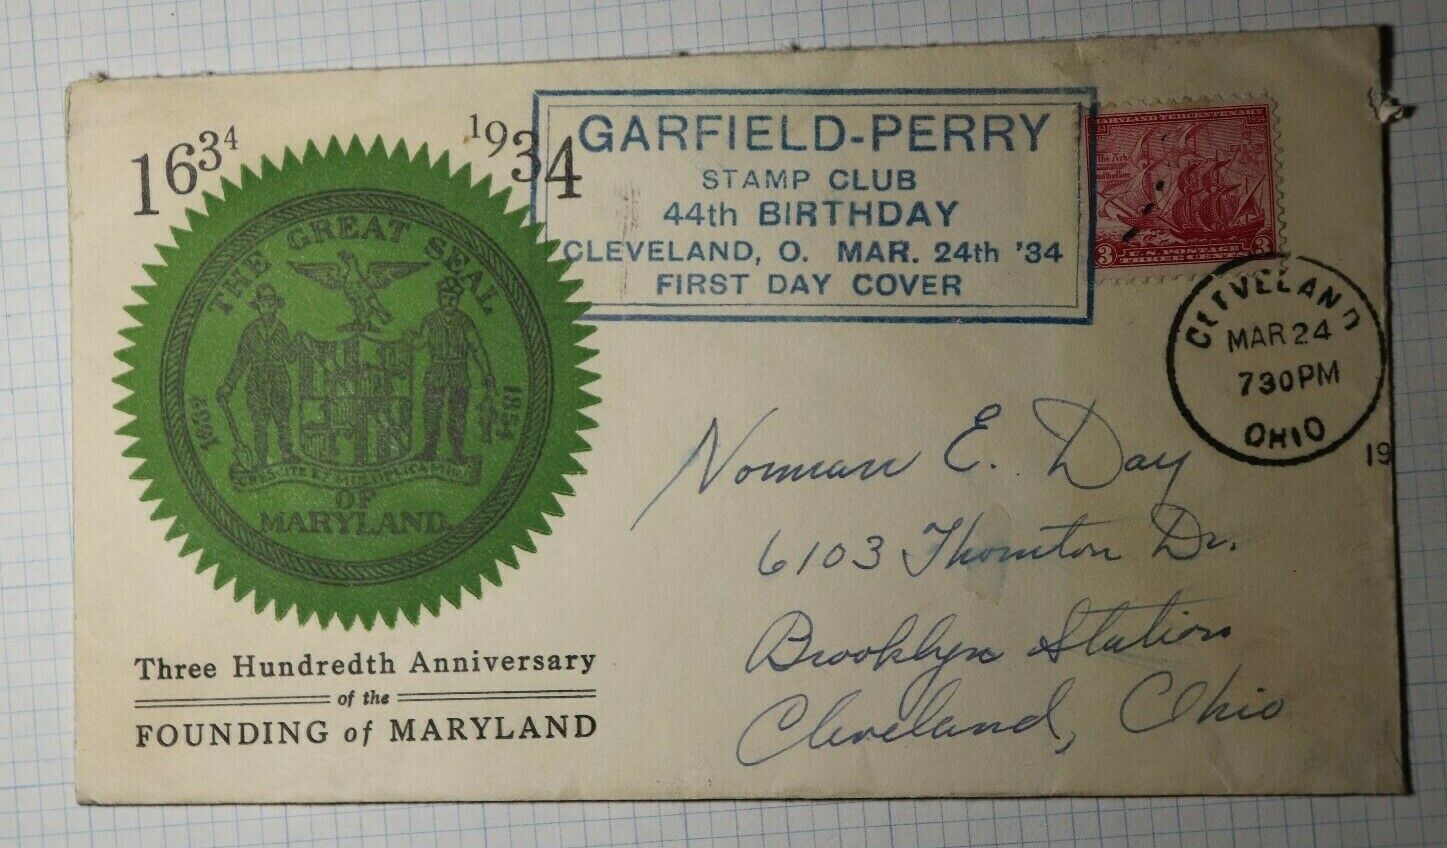 1634 1934
THE GREAT SEAL
1632 1854
OF
MARYLAND.
Three Hundredth Anniversary
of the
FOUNDING of MARYLAND
GARFIELD-PERRY
STAMP CLUB
44th BIRTHDAY
CLEVELAND, O. MAR. 24th '34
FIRST DAY COVER
MARYLAND TERCENTENARY
The Ark
and the Dove
3 U.S. POSTAGE 3
THREE CENTS
CLEVELAND
MAR 24
730PM
OHIO
19
Norman E. Day
6103 Thornton Dr.
Brooklyn Station
Cleveland, Ohio